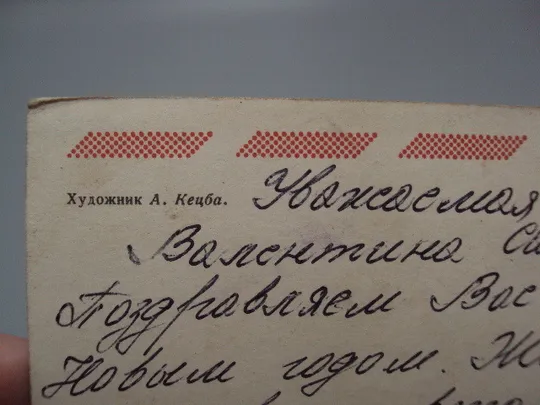 Художник А. Кецба.
Уважаемая
Валентина
Поздравляем Вас
Новым годом.